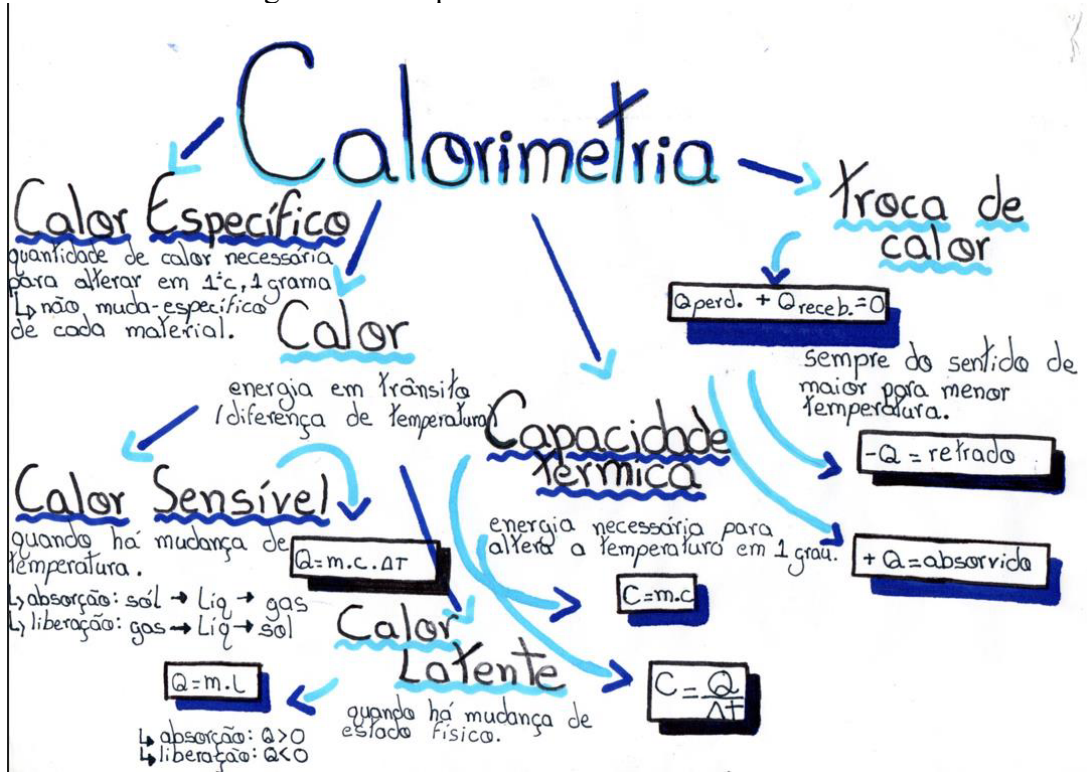 Calorimetria
Calor Específico
quantidade de calor necessária
para alterar em 1°c, 1 grama
↳ não muda-específico
de cada material.
Calor
energia em trânsito
(diferença de temperatura)
Calor Sensível
quando há mudança de
temperatura.
↳ absorção: sól → Liq → gas
↳ liberação: gas → Liq → sol
Q=m.c.ΔT
Calor
Latente
quando há mudança de
estado físico.
Q=m.L
↳ absorção: Q>0
↳ liberação: Q<0
Capacidade
térmica
energia necessária para
altera a temperatura em 1 grau.
C=m.c
C=Q
ΔT
Troca de
calor
Qperd. + Qreceb.=0
sempre do sentido de
maior para menor
temperatura.
-Q = retrado
+Q=absorvido